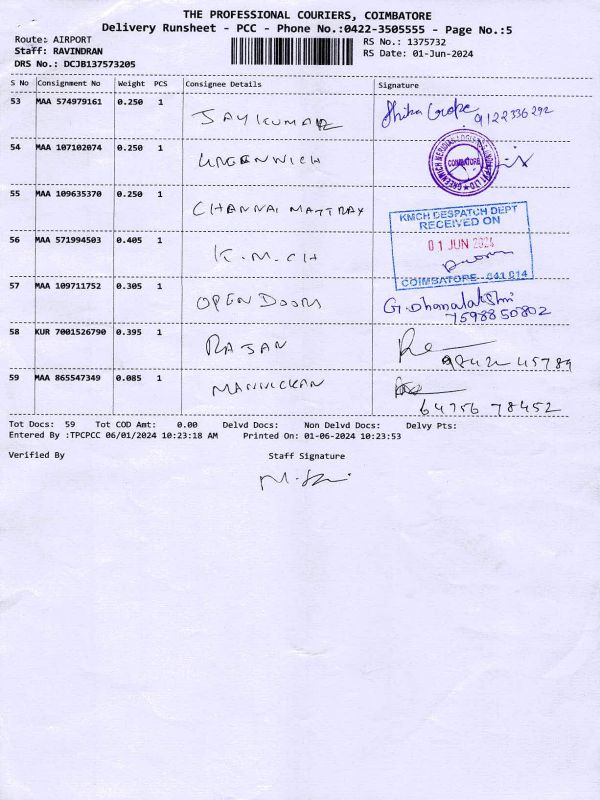 THE PROFESSIONAL COURIERS, COIMBATORE
Delivery Runsheet - PCC - Phone No.:0422-3505555 - Page No.:5
Route: AIRPORT
RS No.: 1375732
Staff: RAVINDRAN
RS Date: 01-Jun-2024
DRS No.: DCJB137573205
S No Consignment No Weight PCS Consignee Details Signature
53 MAA 574979161 0.250 1 JAYKUMAR 9122336292
54 MAA 107102074 0.250 1 GREENWICH
COIMBATORE
55 MAA 109635370 0.250 1 CHANNAI MATTRAX
KMCH DESPATCH DEPT
RECEIVED ON
56 MAA 571994503 0.405 1 K.M.CH
01 JUN 2024
COIMBATORE - 641 014
57 MAA 109711752 0.305 1 OPEN DOORS G. Dhanalakshmi
7598850802
58 KUR 7001526790 0.395 1 RAJAN
98422 45789
59 MAA 865547349 0.085 1 MANNICKAN
64756 78452
Tot Docs: 59 Tot COD Amt: 0.00 Delvd Docs: Non Delvd Docs: Delvy Pts:
Entered By :TPCPCC 06/01/2024 10:23:18 AM Printed On: 01-06-2024 10:23:53
Verified By Staff Signature